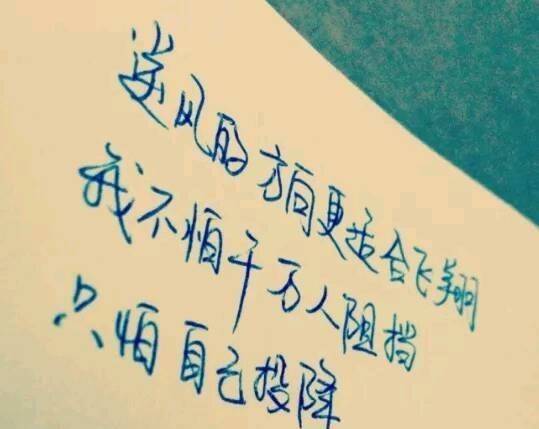 逆风的方向更适合飞翔
我不怕千万人阻挡
只怕自己投降